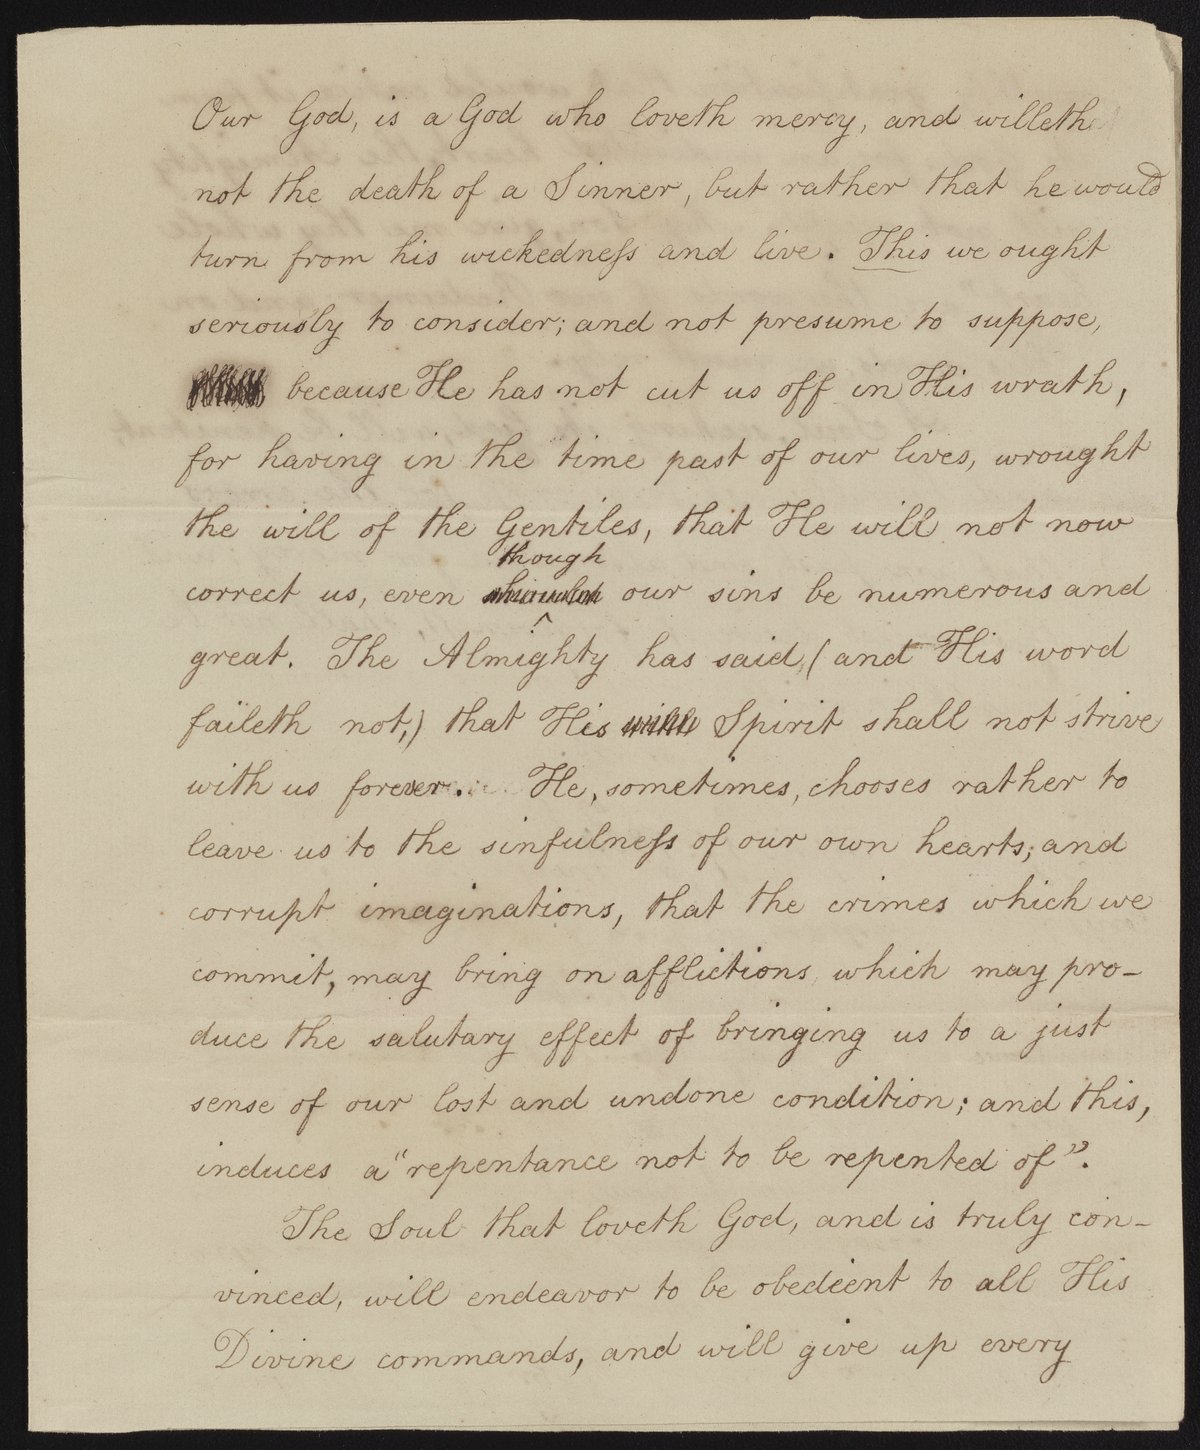 Our God, is a God who loveth mercy, and willeth
not the death of a Sinner, but rather that he would
turn from his wickedneſs and live. This we ought
seriously to consider; and not presume to suppose,
because He has not cut us off in His wrath,
for having in the time past of our lives, wrought
the will of the Gentiles, that He will not now
though
correct us, even our sins be numerous and
great. The Almighty has said, (and His word
faileth not,) that His will Spirit shall not strive
with us forever. He, sometimes, chooses rather to
leave us to the sinfulneſs of our own hearts, and
corrupt imaginations, that the crimes which we
commit, may bring on afflictions which may pro-
duce the salutary effect of bringing us to a just
sense of our lost and undone condition; and this,
induces a "repentance not to be repented of".
The Soul that loveth God, and is truly con-
vinced, will endeavor to be obedient to all His
Divine commands, and will give up every